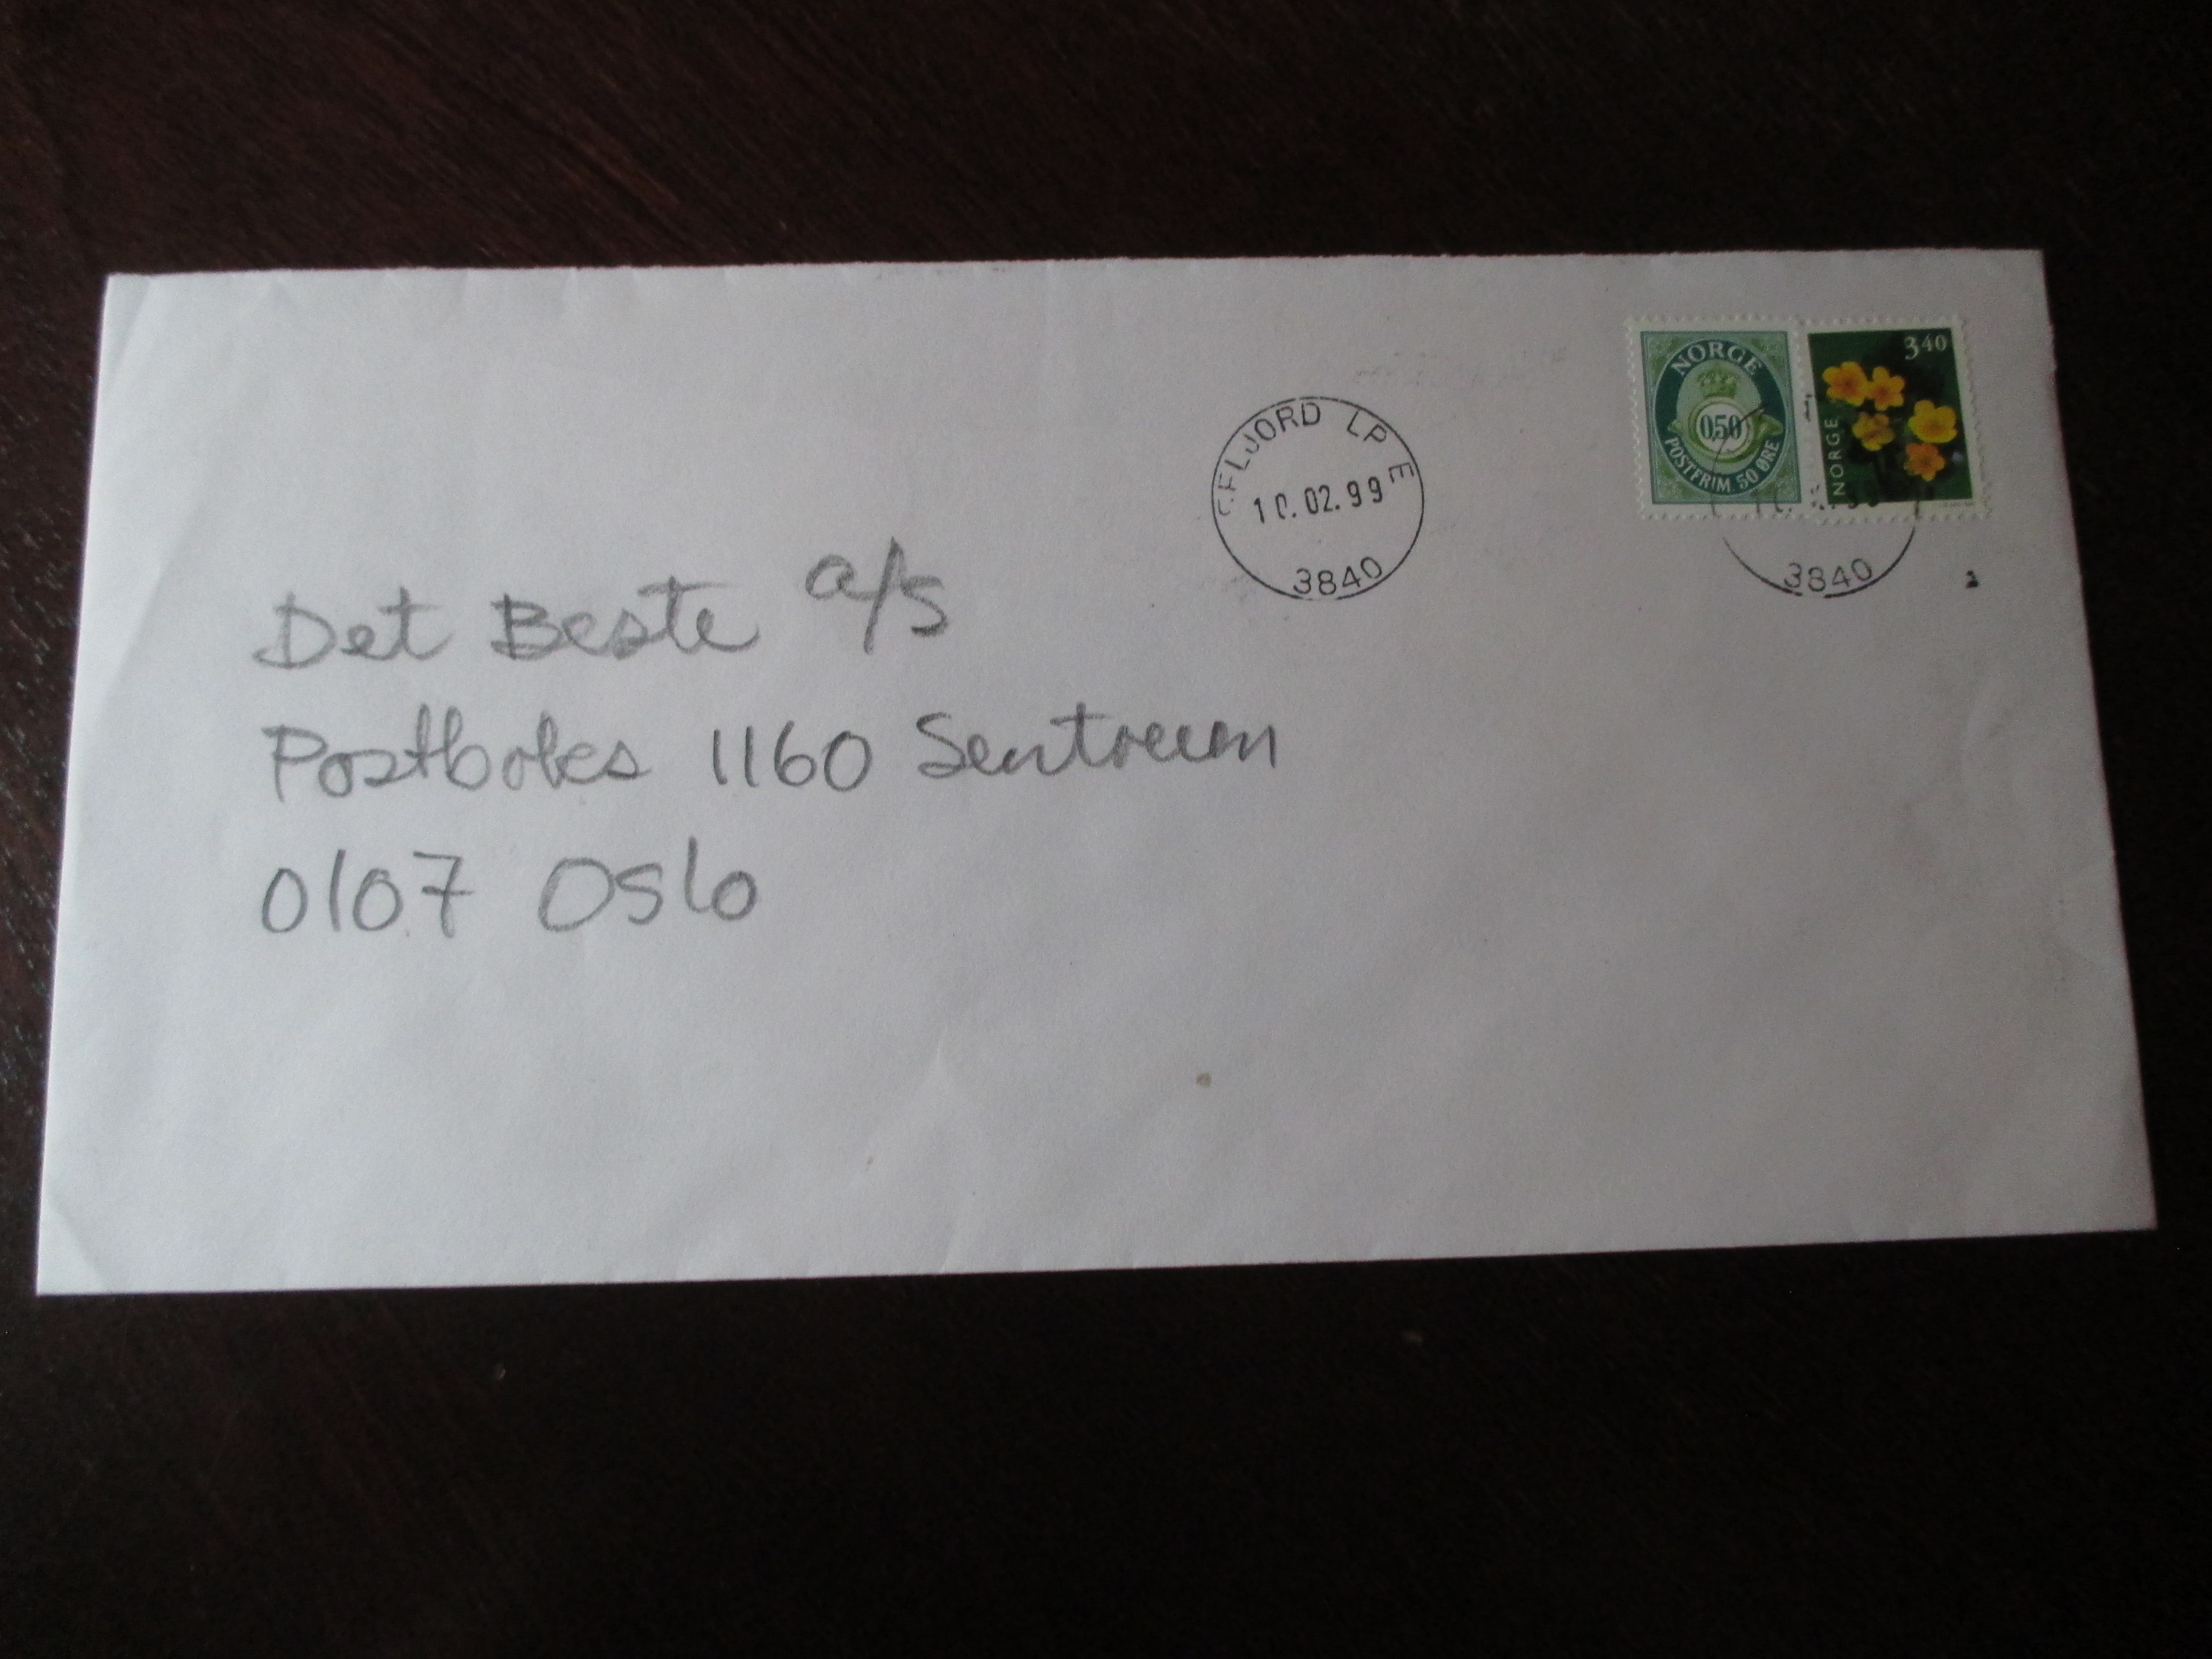 NORGE
0,50
POSTFRIM. 50 ØRE
3 40
NORGE
FLJORD LP E
10.02.99
3840
3840
Det Beste a/s
Postboks 1160 Sentrum
0107 Oslo